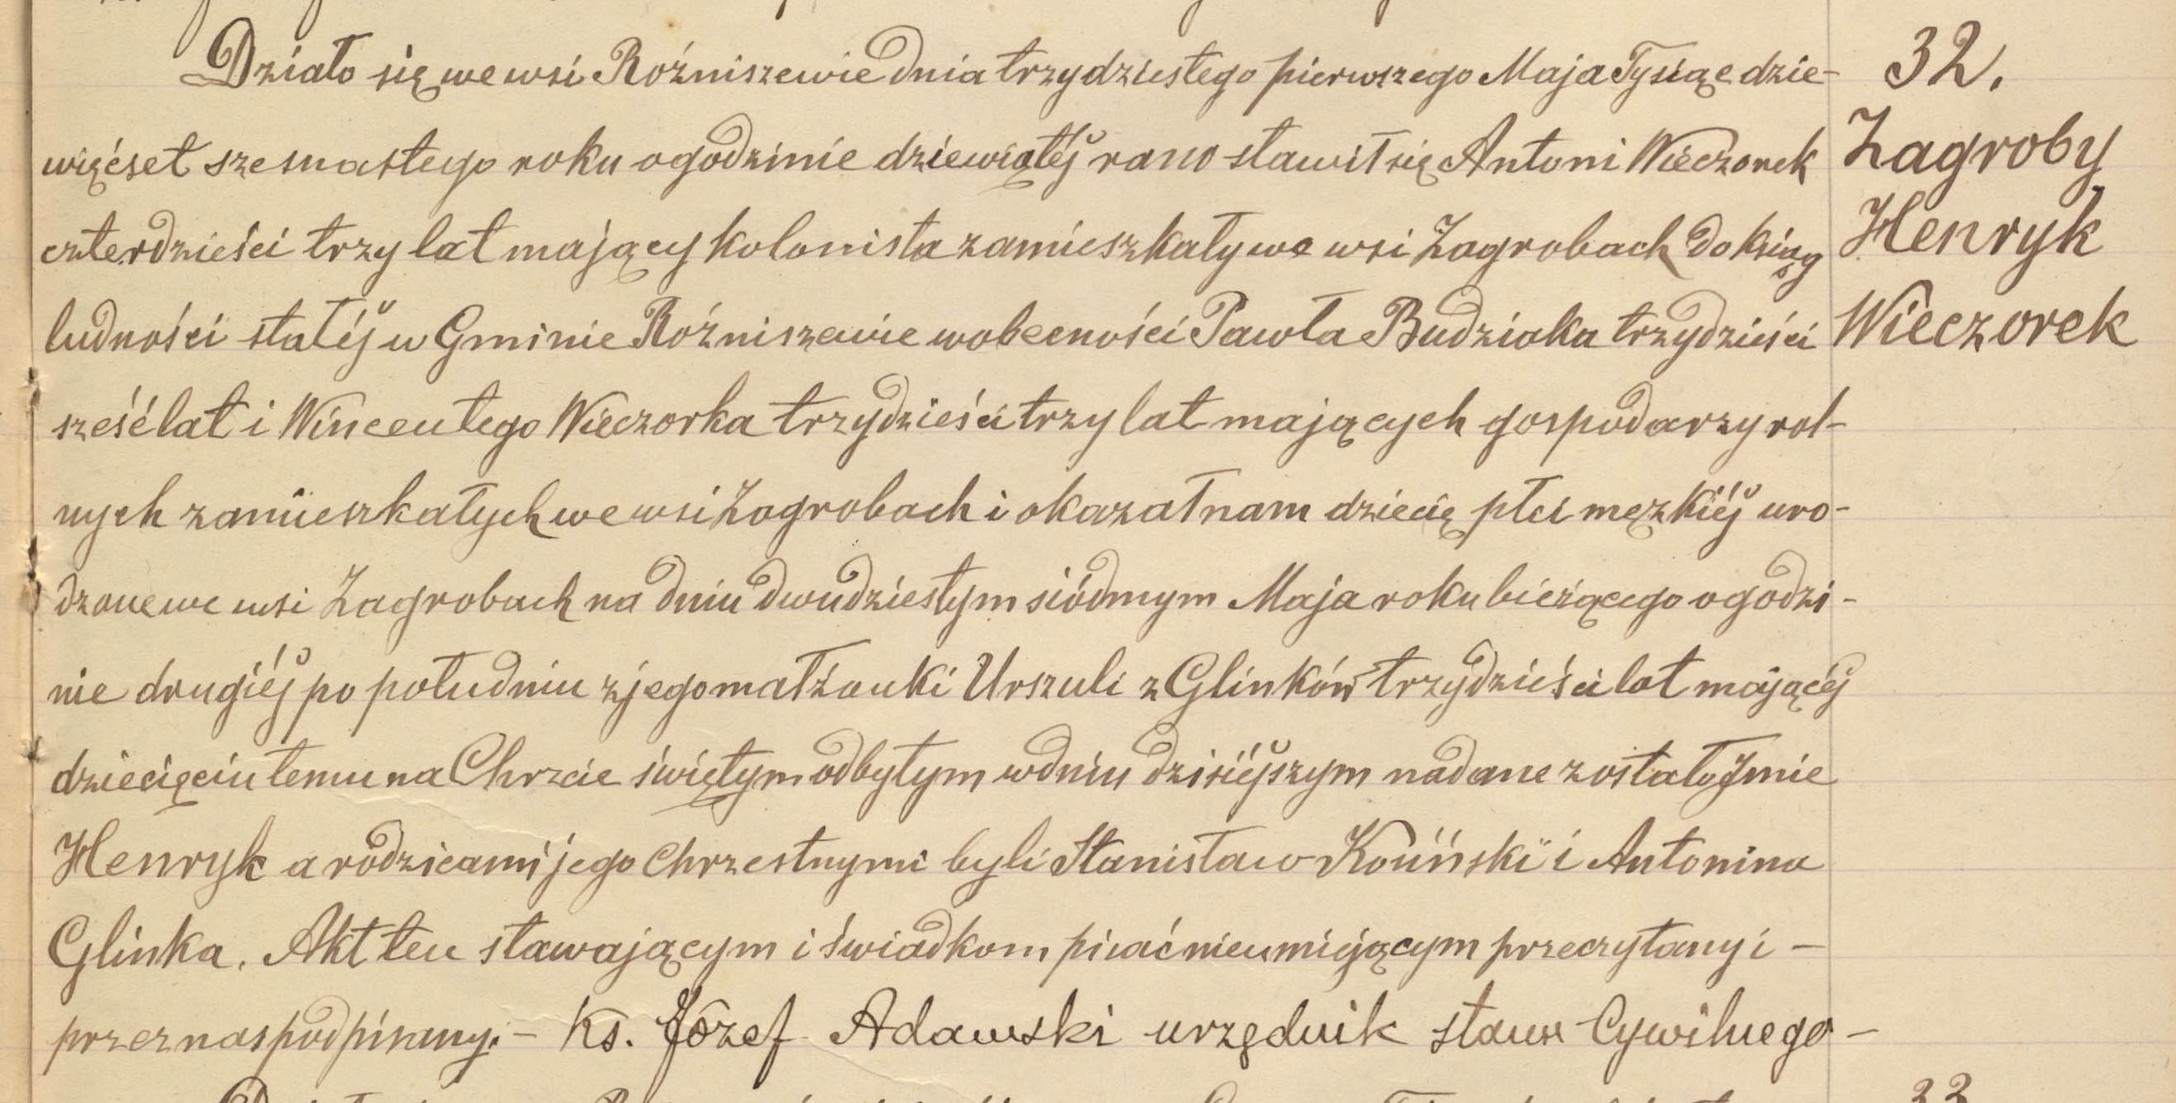 Działo się we wsi Rożniszewie dnia trzydziestego pierwszego Maja Tysiąc dzie-
więćset szesnastego roku o godzinie dziewiątéj rano stawił się Antoni Wieczorek
czterdzieści trzy lat mający kolonista zamieszkały we wsi Zagrobach do ksiąg
ludności stałéj w Gminie Rożniszewie w obecności Pawła Budziaka trzydzieści
sześć lat i Wincentego Wieczorka trzydzieści trzy lat mających gospodarzy rol-
nych zamieszkałych we wsi Zagrobach i okazał nam dziecię płci męzkiéj uro-
dzone we wsi Zagrobach na dniu dwudziestym siódmym Maja roku bieżącego o godzi-
nie drugiéj po południu z jego małżonki Urszuli z Glinków trzydzieści lat mającéj
dziecięciu temu na Chrzcie świętym odbytym w dniu dzisiéjszym nadane zostało Jmie
Henryk a rodzicami jego chrzestnymi byli Stanisław Kouński i Antonina
Glinka. Akt ten stawającym i świadkom pisać nieumiejącym przeczytany i -
przez nas podpisany. - Ks. Józef Adawski urzędnik stanu Cywilnego -
32.
Zagroby
Henryk
Wieczorek
33